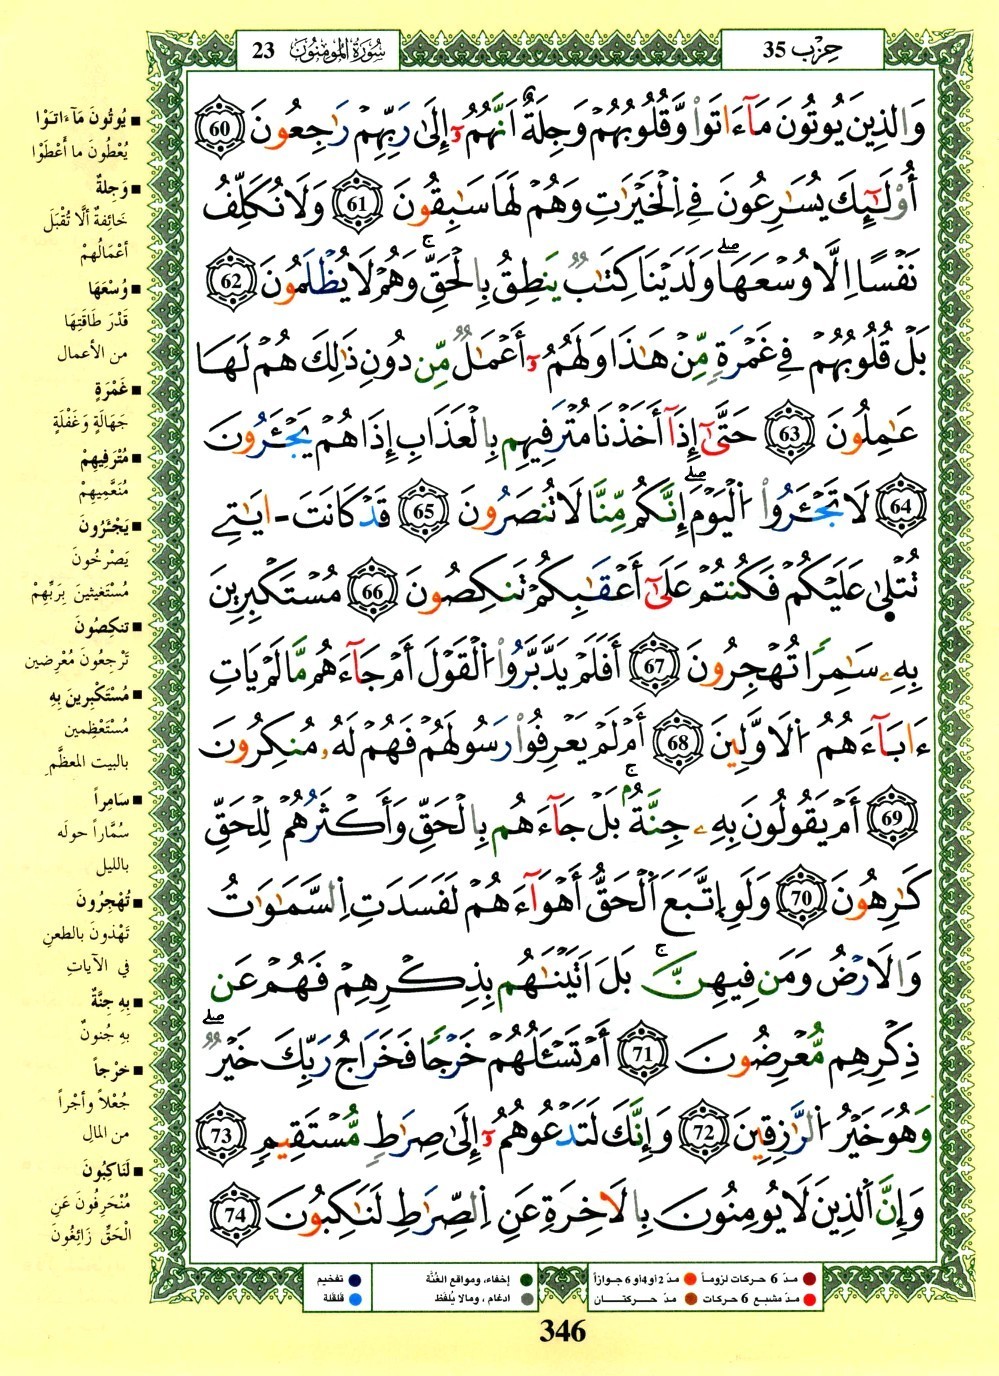 حِزْب 35
سُورَةُ المُومِنُونَ 23
وَالذِينَ يُوتُونَ مَآ ءَاتَوا وَّقُلُوبُهُمْ وَجِلَةٌ اَنَّهُمُۥٓ إِلَىٰ رَبِّهِمْ رَٰجِعُونَ 60
أُوْلَٰٓئِكَ يُسَٰرِعُونَ فِے اِلْخَيْرَٰتِ وَهُمْ لَهَا سَٰبِقُونَ 61 وَلَا نُكَلِّفُ
نَفْسًا اِلَّا وُسْعَهَاۖ وَلَدَيْنَا كِتَٰبٌ يَنطِقُ بِالْحَقِّۚ وَهُمْ لَا يُظْلَمُونَ 62
بَلْ قُلُوبُهُمْ فِے غَمْرَةٍ مِّنْ هَٰذَا وَلَهُمُۥٓ أَعْمَٰلٌ مِّن دُونِ ذَٰلِكَ هُمْ لَهَا
عَٰمِلُونَ 63 حَتَّىٰٓ إِذَآ أَخَذْنَا مُتْرَفِيهِم بِالْعَذَابِ إِذَا هُمْ يَجْـَٔرُونَ
64 لَا تَجْـَٔرُوا اُ۬لْيَوْمَۖ إِنَّكُم مِّنَّا لَا تُنصَرُونَ 65 قَدْ كَانَتَ ـ ايَٰتِے
تُتْلَىٰ عَلَيْكُمْ فَكُنتُمْ عَلَىٰٓ أَعْقَٰبِكُمْ تَنكِصُونَ 66 مُسْتَكْبِرِينَ
بِهِۦ سَٰمِرًا تُهْجِرُونَ 67 أَفَلَمْ يَدَّبَّرُوا اُ۬لْقَوْلَ أَمْ جَآءَهُم مَّا لَمْ يَاتِ
ءَابَآءَهُمُ اُ۬لَاوَّلِينَ 68 أَمْ لَمْ يَعْرِفُوا رَسُولَهُمْ فَهُمْ لَهُۥ مُنكِرُونَ
69 أَمْ يَقُولُونَ بِهِۦ جِنَّةُۢۚ بَلْ جَآءَهُم بِالْحَقِّ وَأَكْثَرُهُمْ لِلْحَقِّ
كَٰرِهُونَ 70 وَلَوِ اِتَّبَعَ اَ۬لْحَقُّ أَهْوَآءَهُمْ لَفَسَدَتِ اِ۬لسَّمَٰوَٰتُ
وَالَارْضُ وَمَن فِيهِنَّۚ بَلَ اَتَيْنَٰهُم بِذِكْرِهِمْ فَهُمْ عَن
ذِكْرِهِم مُّعْرِضُونَ 71 أَمْ تَسْـَٔلُهُمْ خَرْجًا فَخَرَاجُ رَبِّكَ خَيْرٌۖ
وَهُوَ خَيْرُ اُ۬لرَّٰزِقِينَ 72 وَإِنَّكَ لَتَدْعُوهُمُۥٓ إِلَىٰ صِرَٰطٍ مُّسْتَقِيمٍ 73
وَإِنَّ اَ۬لذِينَ لَا يُومِنُونَ بِالَاخِرَةِ عَنِ اِ۬لصِّرَٰطِ لَنَٰكِبُونَ 74
■ يُوتُونَ مَآ ءَاتَوْا
يُعْطُونَ ما أَعْطَوْا
■ وَجِلَةٌ
خَائِفةٌ ألَّا تُقْبَلَ
أعْمَالُهمْ
■ وُسْعَهَا
قَدْرَ طَاقَتِهَا
من الأعمال
■ غَمْرَةٍ
جَهَالَةٍ وَغَفْلَةٍ
■ مُتْرَفِيهِمْ
مُنَعَّمِيهِمْ
■ يَجْـَٔرُونَ
يَصْرخُونَ
مُسْتَغيثينَ بِرَبِّهِمْ
■ تنكِصُونَ
تَرْجعُونَ مُعْرِضين
■ مُسْتَكْبِرينَ بِهِ
مُسْتَعْظِمين
بالبيت المعظَّمِ
■ سَامِراً
سُمَّاراً حولَه
بالليل
■ تُهْجِرُونَ
تَهْذونَ بالطعنِ
في الآياتِ
■ بِهِ جِنَّةٌ
به جُنونٌ
■ خَرْجاً
جُعْلاً وأجْراً
من المالِ
■ لَنَاكِبُونَ
مُنْحَرِفُونَ عَنِ
الْحَقِّ زَائِغُونَ
مدّ 6 حركات لزوماً مدّ 2 أو 4 أو 6 جوازاً إخفاء، ومواقع الغُنَّة تفخيم
مدّ مشبع 6 حركات مدّ حركتان ادغام، ومالا يُلفَظ قلقلة
346